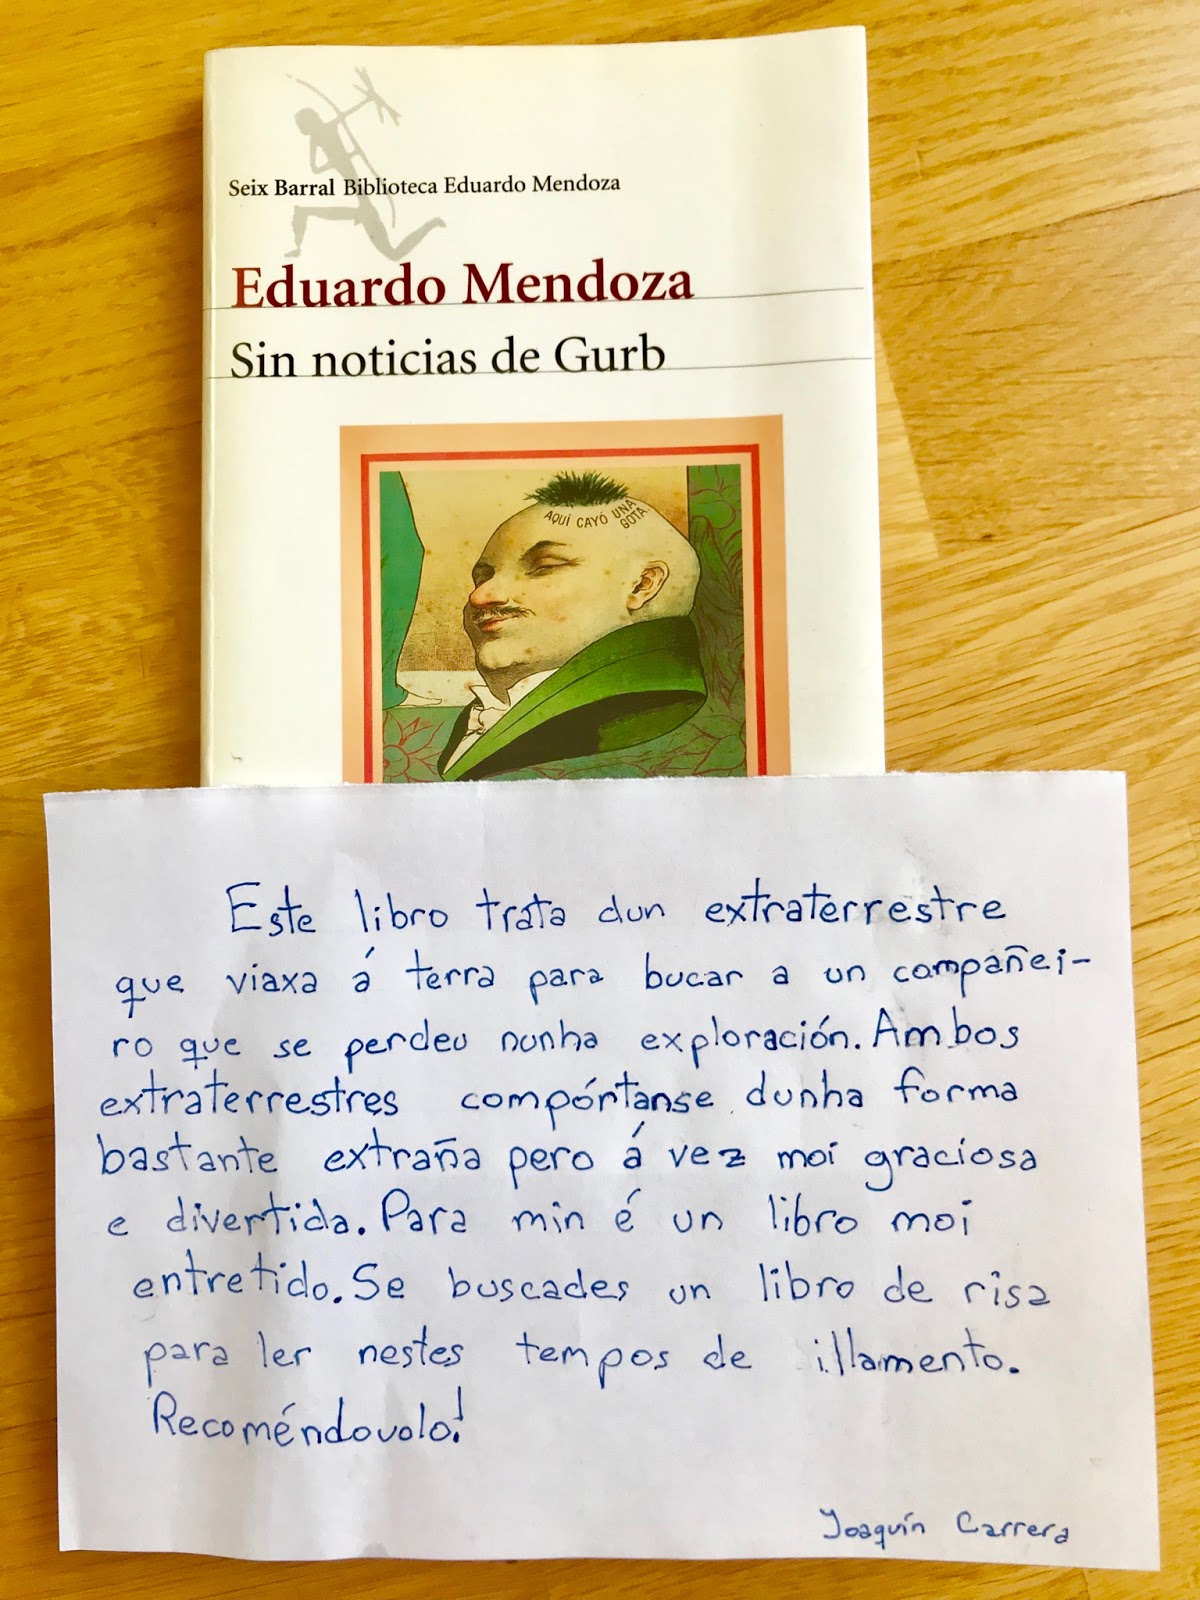 Seix Barral Biblioteca Eduardo Mendoza
Eduardo Mendoza
Sin noticias de Gurb
AQUÍ CAYÓ UNA
GOTA
Este libro trata dun extraterrestre
que viaxa á terra para bucar a un compañei-
ro que se perdeu nunha exploración. Ambos
extraterrestres compórtanse dunha forma
bastante extraña pero á vez moi graciosa
e divertida. Para min é un libro moi
entretido. Se buscades un libro de risa
para ler nestes tempos de illamento.
Recoméndovolo!
Joaquín Carrera